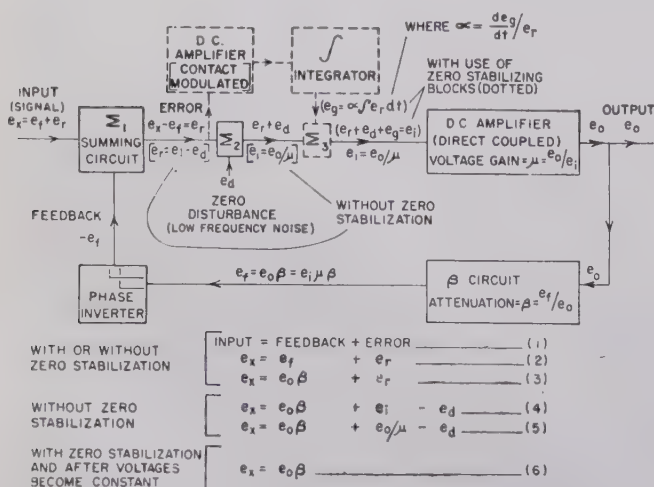 WHERE ∝ = de_g/dt / e_r
D C.
AMPLIFIER
[CONTACT
MODULATED]
∫
INTEGRATOR
WITH USE OF
ZERO STABILIZING
BLOCKS (DOTTED)
INPUT
(SIGNAL)
e_x = e_f + e_r
ERROR
(e_g = ∝∫e_r dt)
OUTPUT
Σ_1
SUMMING
CIRCUIT
e_x - e_f = e_r
[e_r = e_i - e_d]
Σ_2
e_r + e_d
[e_i = e_o/μ]
Σ_3
(e_r + e_d + e_g = e_i)
e_i = e_o/μ
DC AMPLIFIER
(DIRECT COUPLED)
VOLTAGE GAIN = μ = e_o/e_i
e_o
e_o
e_d
ZERO
DISTURBANCE
(LOW FREQUENCY NOISE)
WITHOUT ZERO
STABILIZATION
FEEDBACK
-e_f
e_o
PHASE
INVERTER
e_f = e_o β = e_i μ β
β CIRCUIT
ATTENUATION = β = e_f/e_o
WITH OR WITHOUT
ZERO STABILIZATION
INPUT = FEEDBACK + ERROR (1)
e_x = e_f + e_r (2)
e_x = e_o β + e_r (3)
WITHOUT ZERO
STABILIZATION
e_x = e_o β + e_i - e_d (4)
e_x = e_o β + e_o/μ - e_d (5)
WITH ZERO STABILIZATION
AND AFTER VOLTAGES
BECOME CONSTANT
e_x = e_o β (6)